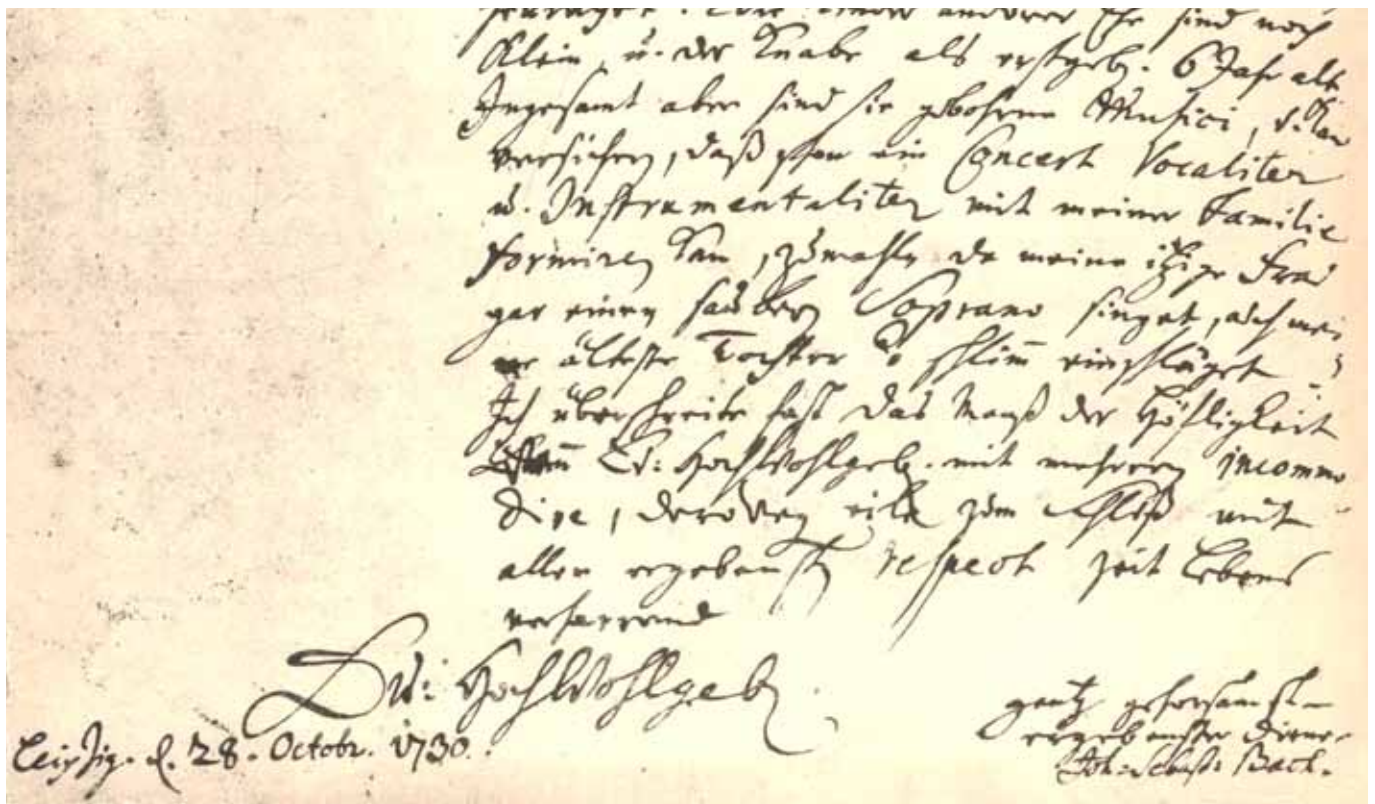 anderer Ehe sind noch
klein, u. der Knabe als erstgeb. 6 Jahr alt
Ingesamt aber sind sie gebohrne Musici, u. kan
versichern, daß schon ein Concert Vocaliter
u. Instrumentaliter mit meiner Familie
formiren kan, zumahln da meine itzige Frau
gar einen saubern Soprano singet, auch mei
ne älteste Tochter schlim̅ einschläget
Ich überschreite fast das Maaß der Höfligkeit
wen̅ Eu: Hochwohlgeb. mit mehrern incommo
dire, derowegen eile zum Schluß mit
allen ergebensten respect zeit Lebens
verharrend
Eu: Hochwohlgeb.
gantz gehorsamst-
ergebenster Diener
Joh: Sebast: Bach.
Leipzig. d. 28. Octobr. 1730.